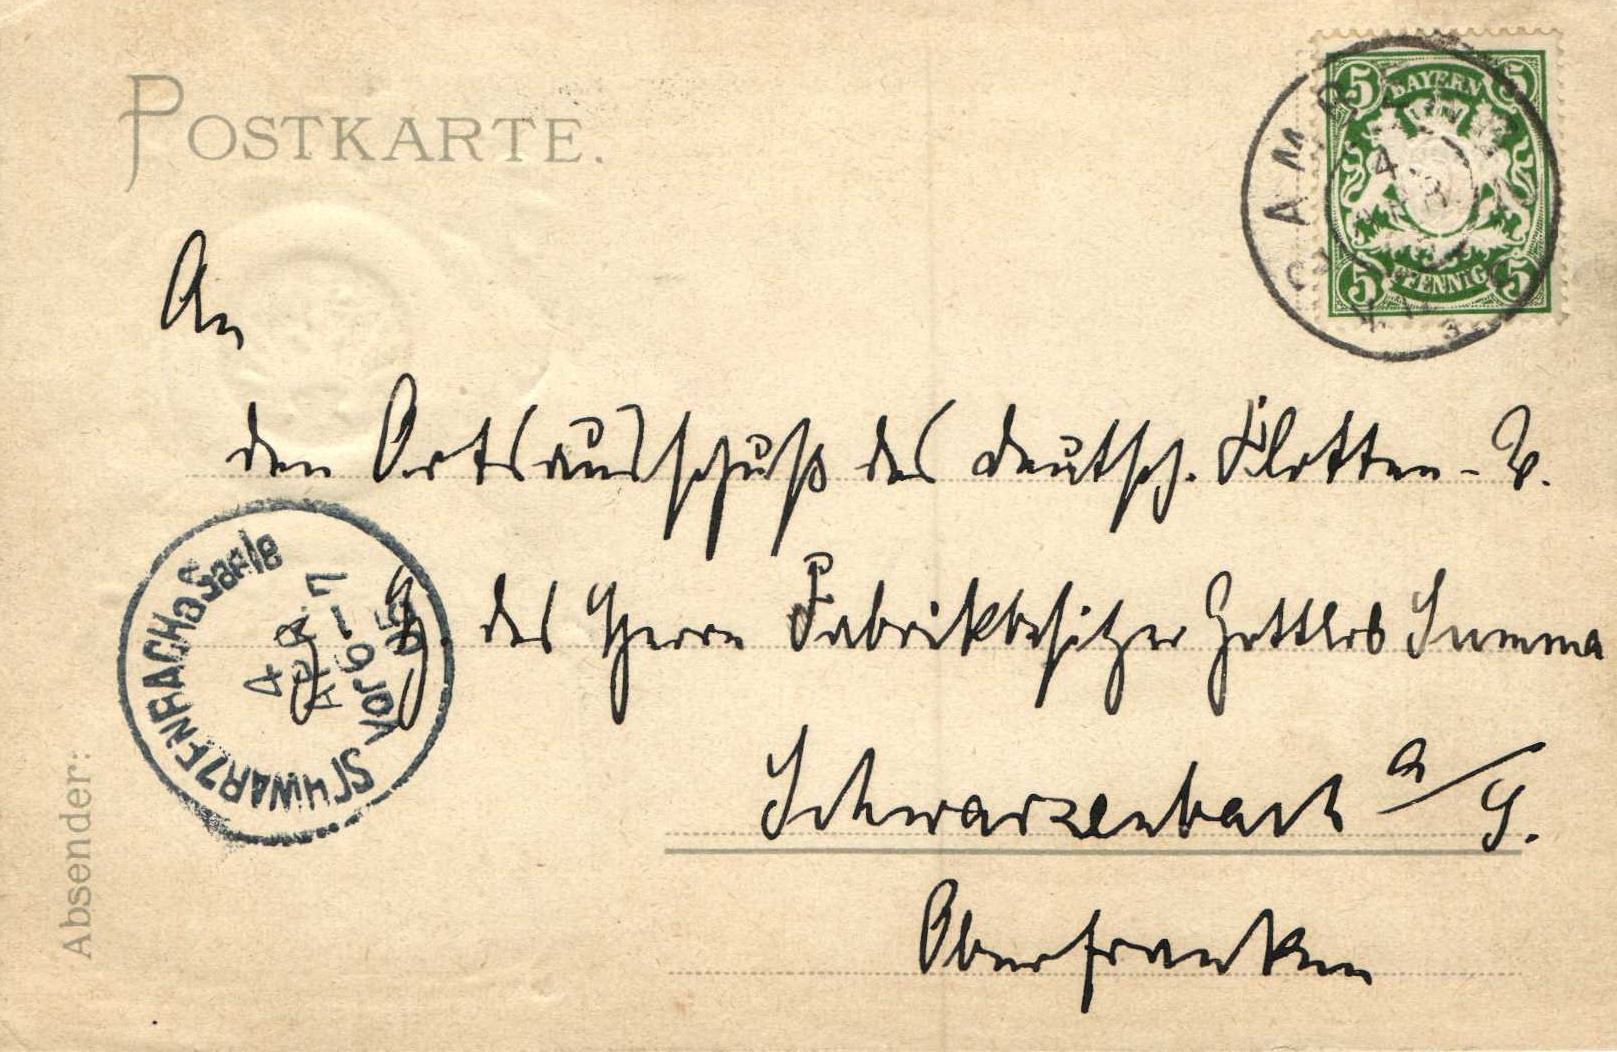 POSTKARTE.
5 BAYERN 5
5 PFENNIG 5
An
den Ortsausschuß des deutsch. Flotten-V.
des Herrn Fabrikbesitzer Gottlob Summa
Schwarzenbach a/S.
Oberfranken
SCHWARZENBACH a Saale
4 APR
Vor 6-7
05
Absender: